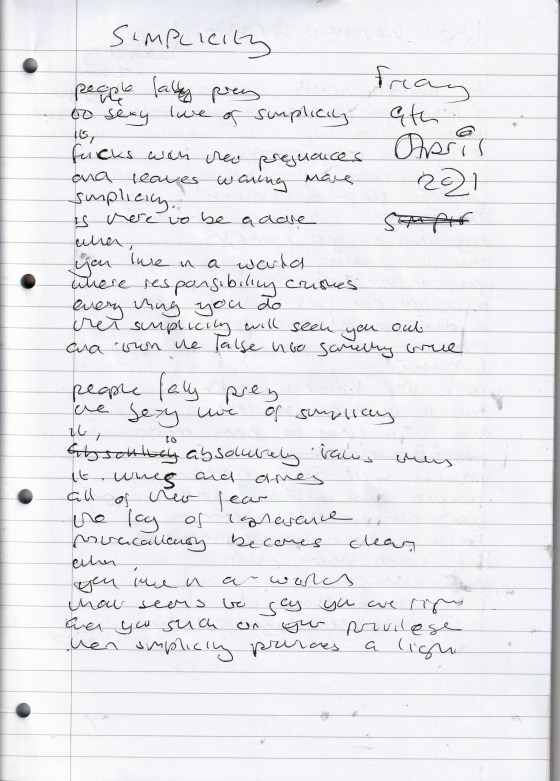 Simplicity
Friday
9th
April
2021
people fall prey
to the sexy lure of simplicity
it,
fucks with their
and leaves wanting more
simplicity.
is there to be adore
when,
you live in a world
where responsibility crushes
every thing you do
then simplicity will seek you out
and turn the false into something true
people fall prey
the sexy lure of simplicity
it,
absolutely
it. and
all of their fear
the fog of ignorance
miraculously becomes clear,
when,
you live in a world
that seems to say you are right
and you on your privilege
then simplicity provides a light